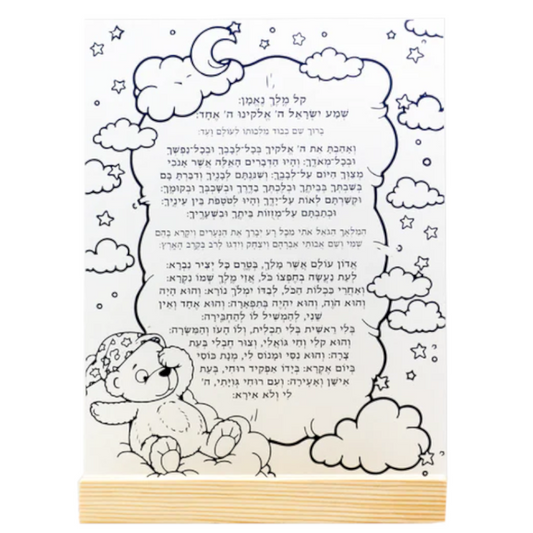 קל מֶלֶךְ נֶאֱמָן:
שְׁמַע יִשְׂרָאֵל ה' אֱלֹקֵינוּ ה' אֶחָד:
ברוך שם כבוד מלכותו לעולם ועד:
וְאָהַבְתָּ אֵת ה' אֱלֹקֶיךָ בְּכָל-לְבָבְךָ וּבְכָל-נַפְשְׁךָ
וּבְכָל-מְאֹדֶךָ: וְהָיוּ הַדְּבָרִים הָאֵלֶּה אֲשֶׁר אָנֹכִי
מְצַוְּךָ הַיּוֹם עַל-לְבָבֶךָ: וְשִׁנַּנְתָּם לְבָנֶיךָ וְדִבַּרְתָּ בָּם
בְּשִׁבְתְּךָ בְּבֵיתֶךָ וּבְלֶכְתְּךָ בַדֶּרֶךְ וּבְשָׁכְבְּךָ וּבְקוּמֶךָ:
וּקְשַׁרְתָּם לְאוֹת עַל-יָדֶךָ וְהָיוּ לְטֹטָפֹת בֵּין עֵינֶיךָ:
וּכְתַבְתָּם עַל-מְזֻזוֹת בֵּיתֶךָ וּבִשְׁעָרֶיךָ:
המלאך הגואל אתי מכל רע יברך את הנערים ויקרא בהם
שמי ושם אבותי אברהם ויצחק וידגו לרב בקרב הארץ:
אֲדוֹן עוֹלָם אֲשֶׁר מָלַךְ, בְּטֶרֶם כָּל יְצִיר נִבְרָא:
לְעֵת נַעֲשָׂה בְחֶפְצוֹ כֹּל, אֲזַי מֶלֶךְ שְׁמוֹ נִקְרָא:
וְאַחֲרֵי כִּכְלוֹת הַכֹּל, לְבַדּוֹ יִמְלֹךְ נוֹרָא: וְהוּא הָיָה
וְהוּא הֹוֶה, וְהוּא יִהְיֶה בְּתִפְאָרָה: וְהוּא אֶחָד וְאֵין
שֵׁנִי, לְהַמְשִׁיל לוֹ לְהַחְבִּירָה:
בְּלִי רֵאשִׁית בְּלִי תַכְלִית, וְלוֹ הָעֹז וְהַמִּשְׂרָה:
וְהוּא קֵלִי וְחַי גּוֹאֲלִי, וְצוּר חֶבְלִי בְּעֵת
צָרָה: וְהוּא נִסִּי וּמָנוֹס לִי, מְנָת כּוֹסִי
בְּיוֹם אֶקְרָא: בְּיָדוֹ אַפְקִיד רוּחִי, בְּעֵת
אִישַׁן וְאָעִירָה: וְעִם רוּחִי גְּוִיָּתִי, ה'
לִי וְלֹא אִירָא: